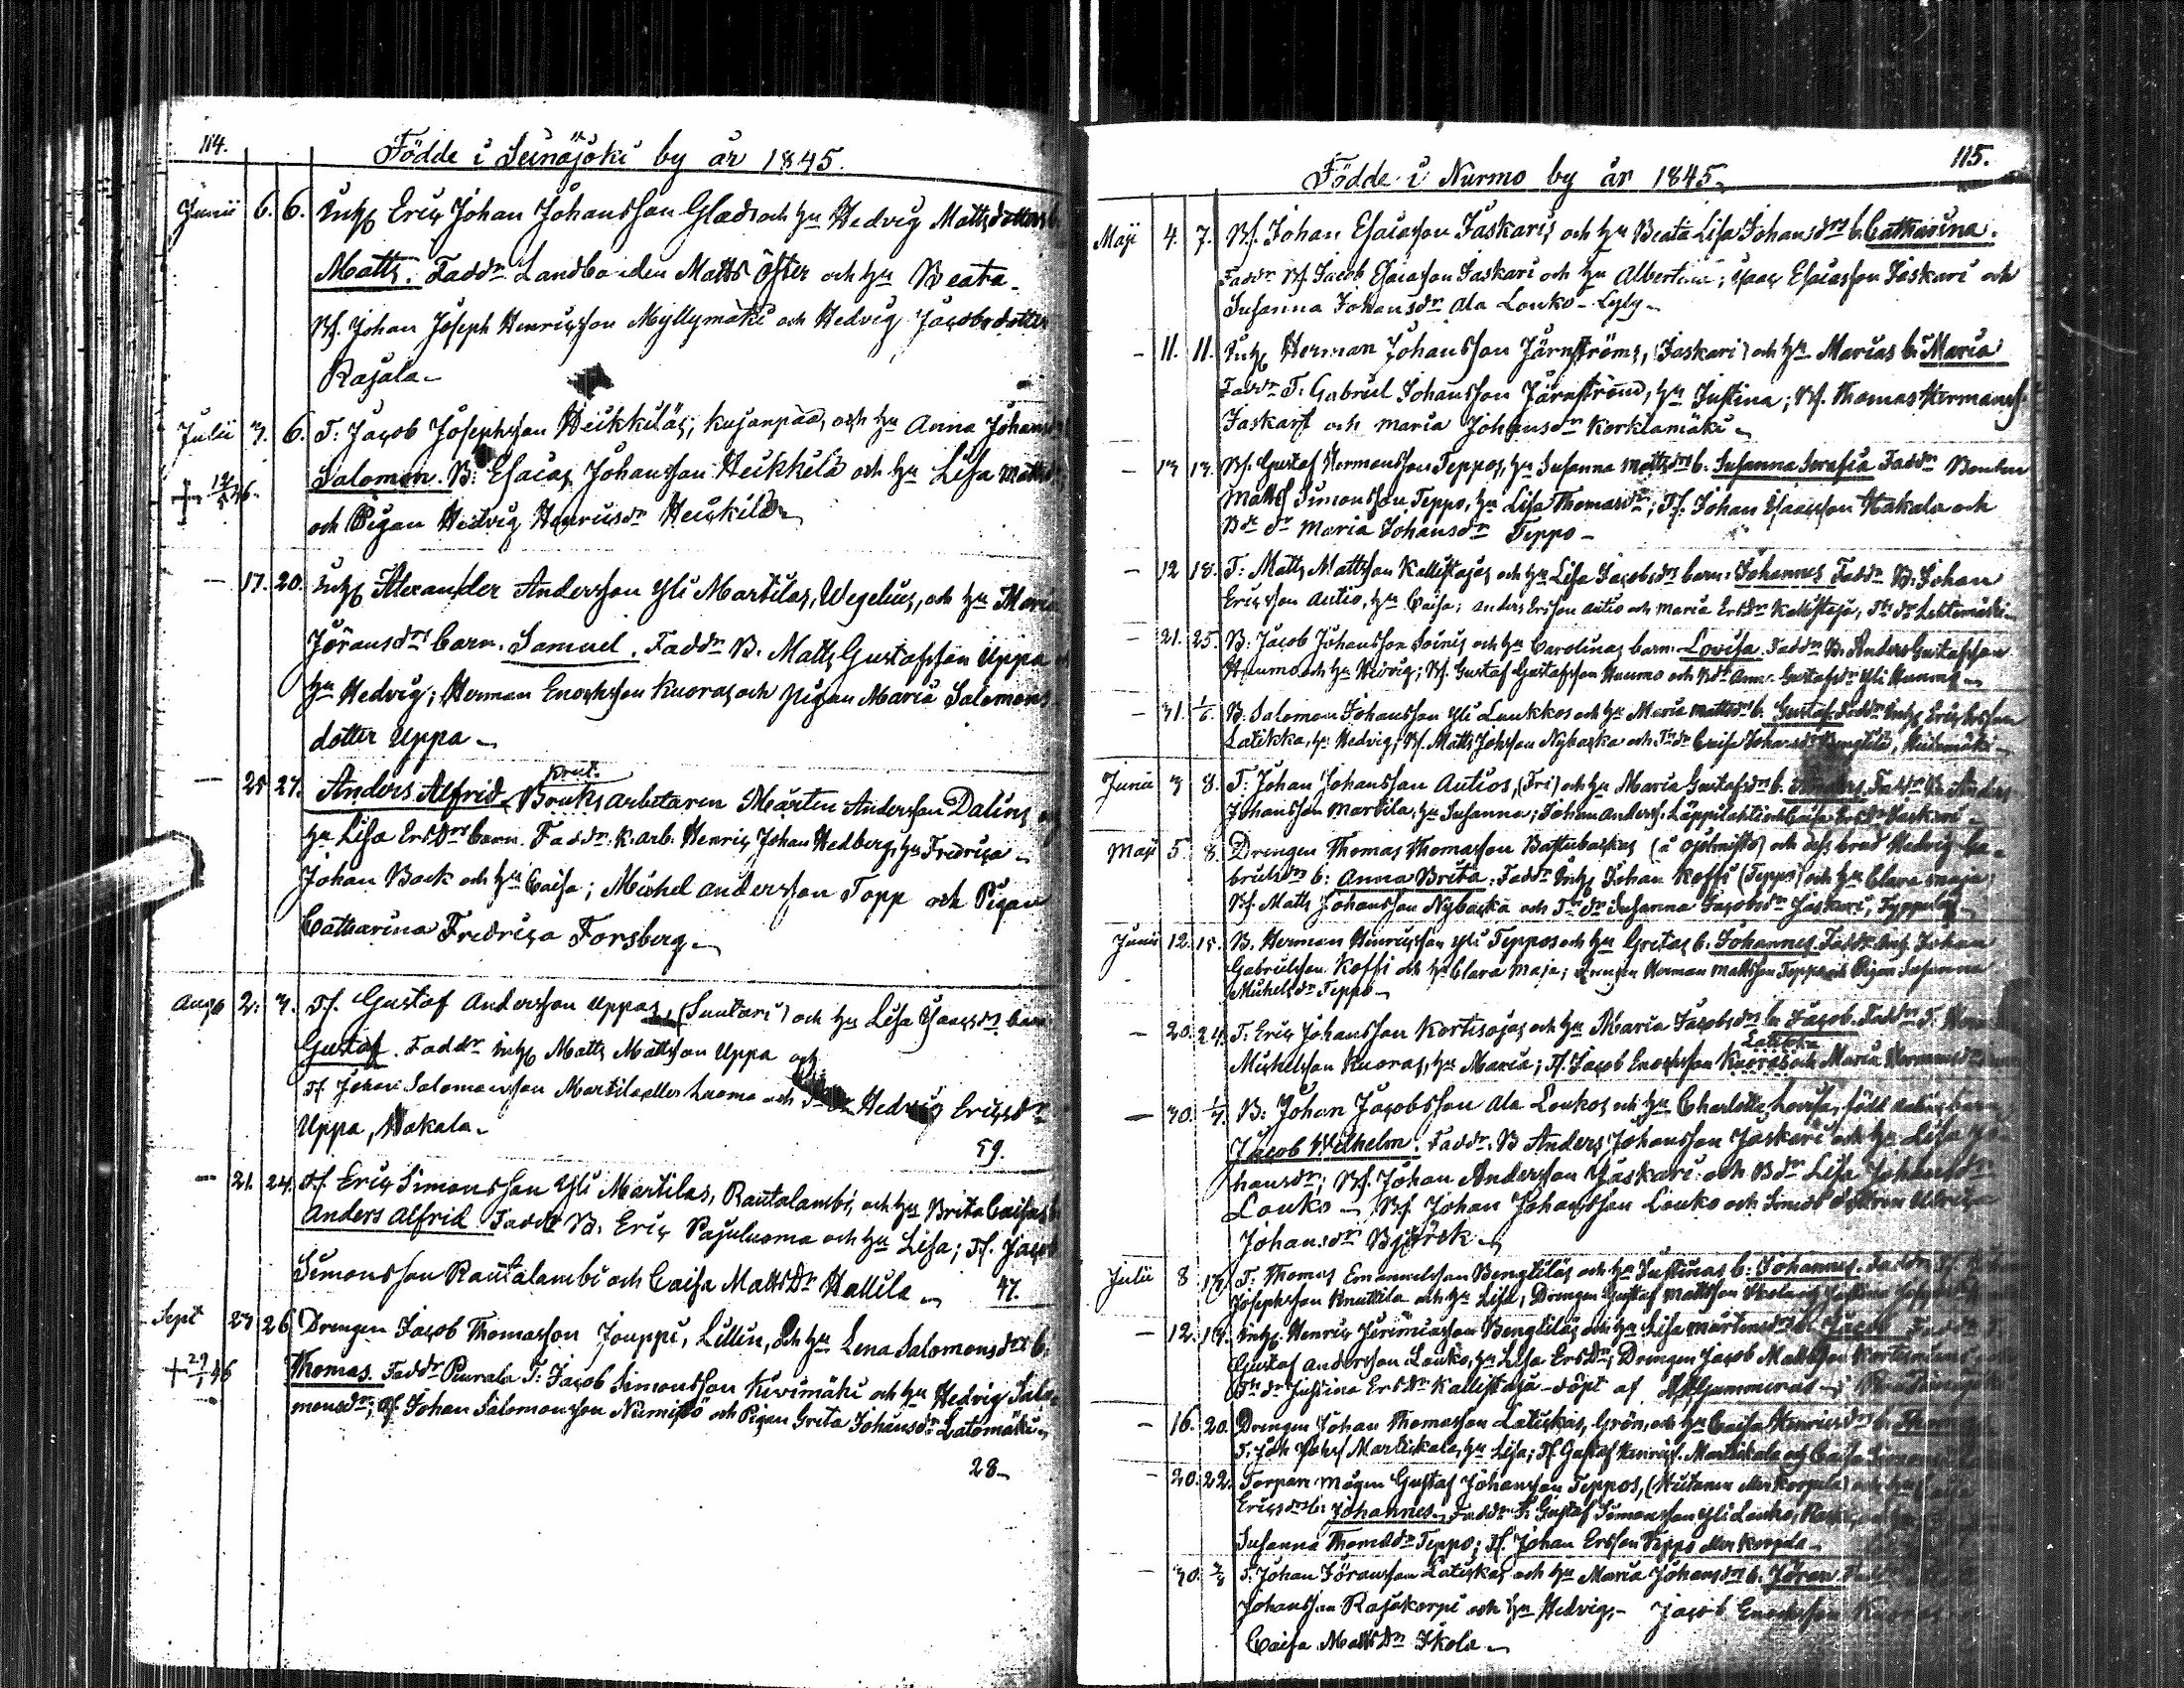 114.
Födde i Seinäjoki by år 1845.
Junii 6. 6. Inhs Eric Johan Johansson Glads och hu Hedvig Mattsdotters b.
Matts. Faddr Landbonden Matts Öster och hu Beata.
Bs. Johan Joseph Henricsson Myllymäki och Hedvig Jacobsdotter
Rajala
Julii 3. 6. T: Jacob Josephsson Heikkiläs, kujanpää, och hu Anna Johans
Salomon. B: Esaias Johansson Heikkilä och hu Lisa Matts
och Pigan Hedvig Henricsdr Heickilä
— 17. 20. Inhs Alexander Andersson Yli Martilas, Wegelius, och hu Maria
Jöransdrs barn. Samuel. Faddr B. Matts Gustafsson Uppa
hu Hedvig; Herman Enochsson Kuoras och pigan Maria Salomons
dotter Uppa
— 25 27. Anders Alfrid Bruks arbetaren Mårten Andersson Dalins
hu Lisa Ersdrs barn. Faddr: k. arb. Henric Johan Hedberg, hu Fredrica
Johan Back och hu Caisa; Michel Andersson Topp och Pigan
Catharina Fredrica Forsberg
Aug 2. 3. Ts. Gustaf Andersson Uppas, (Suutari) och hu Lisa Isaacsdrs barn
Gustaf. Faddr Inhs Matts Mattsson Uppa och
Ts Johan Salomonsson Martila eller Luoma och Hedvig Ericsdr
Uppa, Hakala
59.
— 21. 24. Ts. Eric Simonsson Yli Martilas, Rautalambi, och hu Brita Caisas b
Anders Alfrid Faddr B. Eric Pajuluoma och hu Lisa; Ts. Jacob
Simonsson Rautalambi och Caisa Mattsdr Hallila 47.
Sept 23 26 Drengen Jacob Thomasson Jouppi, Lillin, och hu Lena Salomonsdrs b.
Thomas. Faddr Peurala T: Jacob Simonsson Kivimäki och hu Hedvig Salo-
monsdr; Ts. Johan Salomonsson Niemistö och Pigan Greta Johansdr Latomäki
28
115.
Födde i Nurmo by år 1845
Maji 4. 7. Bs. Johan Esaiasson Jaskaris och hu Beata Lisa Johansdrs b. Catharina.
Faddr Bs. Jacob Esaiasson Jaskari och hu Albertina; Isaac Esaiasson Jaskari och
Susanna Johansdr Ala Louko - Lyly
— 11. 11. Inhs Herman Johansson Järnströms, (Jaskari) och hu Marias b. Maria
Faddr T. Gabriel Johansson Järnström, hu Justina; Bs. Thomas Hermanss.
Jaskari och Maria Johansdr Korkiamäki
— 13 13. Bs. Gustaf Hermansson Teppos, hu Susanna Mattsdrs b. Susanna Serafia Faddr Bonden
Matts Simonsson Teppo, hu Lisa Thomasdr; Ts. Johan Isaacsson Hakala och
Maria Johansdr Teppo
— 12 18. T: Matts Mattsson Kallistajas och hu Lisa Jacobsdrs barn. Johannes Faddr B. Johan
Ericsson Autio, hu Caisa; Anders Ersson Autio och Maria Ersdr Kallistaja,
— 21. 25. B: Jacob Johansson Soinis och hu Carolinas barn. Lovisa. Faddr B. Anders Gustafsson
Haumo och hu Hedvig; Bs. Gustaf Gustafsson Haumo och Anna Gustafsdr Yli Haumo
— 31. 1/6. B. Salomon Johansson Yli Laukkos och hu Maria Mattsdrs b. Gustaf. Faddr Inhs Eric Ersson
Latikka, hu Hedvig; Bs. Matts Johsson Nybacka och Caisa Johansdr Bengtilä,
Junii 3 8. T: Johan Johansson Autios, (Fri) och hu Maria Gustafsdrs b. Faddr B. Anders
Johansson Martila, hu Susanna; Johan Anderss. Läppilahti
Maji 5. 8. Drengen Thomas Thomasson och dess brud Hedvig Ga-
brielsdrs b: Anna Brita. Faddr Inhs Johan Koffi (Teppo) och hu Clara Maja
Bs. Matts Johansson Nybacka och Susanna Jacobsdr Jaskari,
Junii 12. 15. B. Herman Henricsson Yli Teppos och hu Gretas b. Johannes Faddr Inhs Johan
Gabrielsson Koffi och hu Clara Maja; Drengen Herman Mattsson Teppo och Pigan Susanna
Michelsdr Teppo
— 20. 24. T. Eric Johansson Kortisojas och hu Maria Jacobsdrs b Jacob. Faddr T.
Latikka
Michelsson Kuoras, hu Maria; Ts. Jacob Enochsson Kuoras och Maria Hermansdr
— 30. 1/7. B: Johan Jacobsson Ala Loukos och hu Charlotta Lovisa, född barn
Jacob Wilhelm. Faddr. B Anders Johansson Jaskari och hu Lisa Jo-
hansdr; Bs. Johan Andersson Jaskari och Bdr Lisa Johansdr
Louko Bs. Johan Johansson Louko och Ulrica
Johansdr Björck
Julii 8 13. T: Thomas Emanuelsson Bengtiläs och hu Justinas b: Johannes. Faddr
Josephsson Knuttila och hu Lisa; Drengen Gustaf Mattsson
— 12. 13. Inhs Henric Jeremiasson Bengtiläs och hu Lisa Mårtensdrs b. Jacob Faddr T.
Gustaf Andersson Louko, hu Lisa Ersdr; Drengen Jacob Mattsson
Justina Ersdr Kallistaja - döpt af
— 16. 20. Drengen Johan Thomasson Latickas, Grön, och hu Caisa Henricsdrs b.
T. Joh Johss Martickala, hu Lisa; Ts Gustaf Henricss. Martickala och Caisa
— 20. 22. Torpare mågen Gustaf Johansson Teppos,
Ericsdrs b. Johannes. Faddr T: Gustaf Simonsson Yli Louko,
Susanna Thomasdr Teppo; Ts. Johan Ersson Teppo eller Korpela
— 30. 3/8 T. Johan Jöransson Latickas och hu Maria Johansdrs b. Jöran.
Johansson Rajakorpi och hu Hedvig, Jacob Enochsson Kuoras
Caisa Mattsdr Ikola